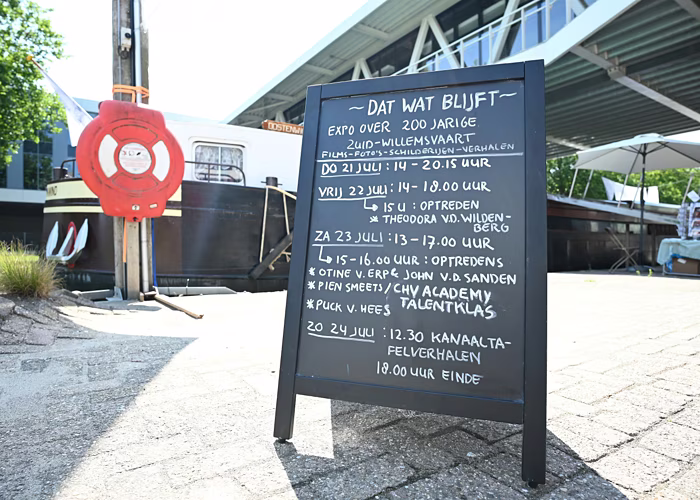 ~DAT WAT BLIJFT~
EXPO OVER 200 JARIGE
ZUID-WILLEMSVAART
FILMS-FOTO'S-SCHILDERIJEN-VERHALEN
DO 21 JULI : 14 - 20.15 UUR
VRIJ 22 JULI : 14 - 18.00 UUR
15 U : OPTREDEN
* THEODORA V.D. WILDEN-
BERG
ZA 23 JULI : 13 - 17.00 UUR
15 - 16.00 UUR : OPTREDENS
* OTINE V. ERP & JOHN V.D. SANDEN
* PIEN SMEETS / CHV ACADEMY
TALENTKLAS
* PUCK V. HEES
ZO 24 JULI : 12.30 KANAALTA-
FELVERHALEN
18.00 UUR EINDE